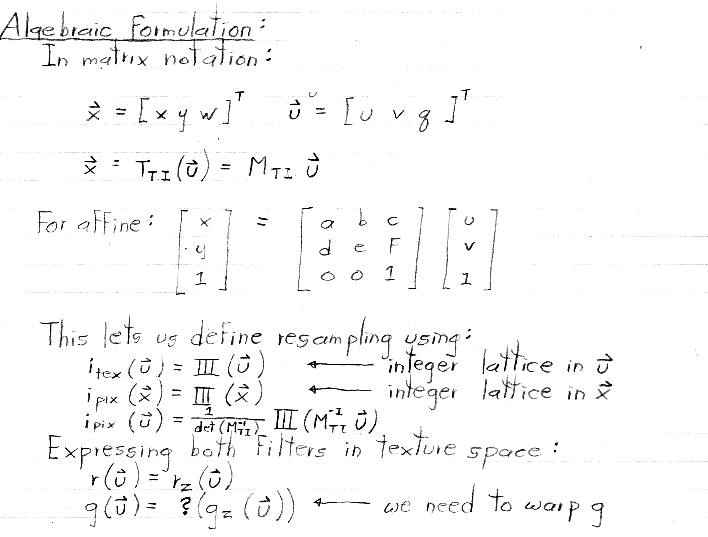 Algebraic Formulation:
In matrix notation:
x⃗ = [x y w]ᵀ   u⃗ = [u v q]ᵀ
x⃗ = T_TI(u⃗) = M_TI u⃗
For affine: [x y 1] = [a b c; d e f; 0 0 1] [u v 1]
This lets us define resampling using:
i_tex(u⃗) = III(u⃗) ← integer lattice in u⃗
i_pix(x⃗) = III(x⃗) ← integer lattice in x⃗
i_pix(u⃗) = 1/det(M_TI⁻¹) III(M_TI⁻¹ u⃗)
Expressing both filters in texture space:
r(u⃗) = r_z(u⃗)
g(u⃗) = ?(g_z(u⃗)) ← we need to warp g